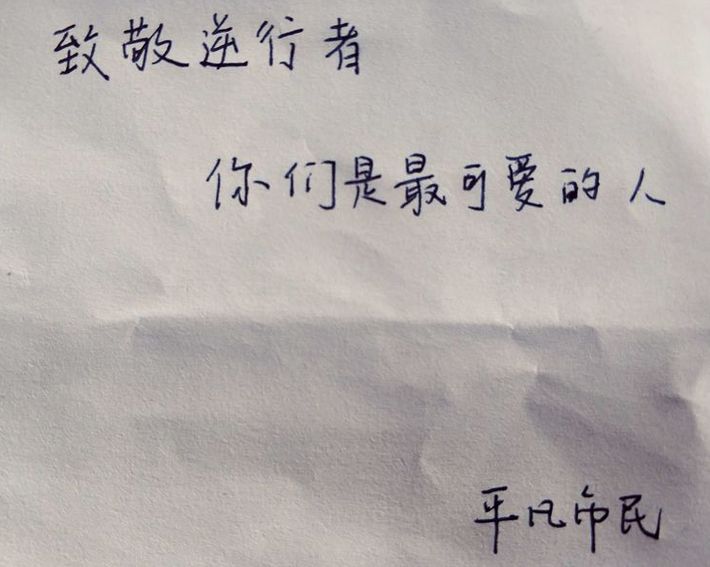 致敬逆行者
你们是最可爱的人
平凡市民